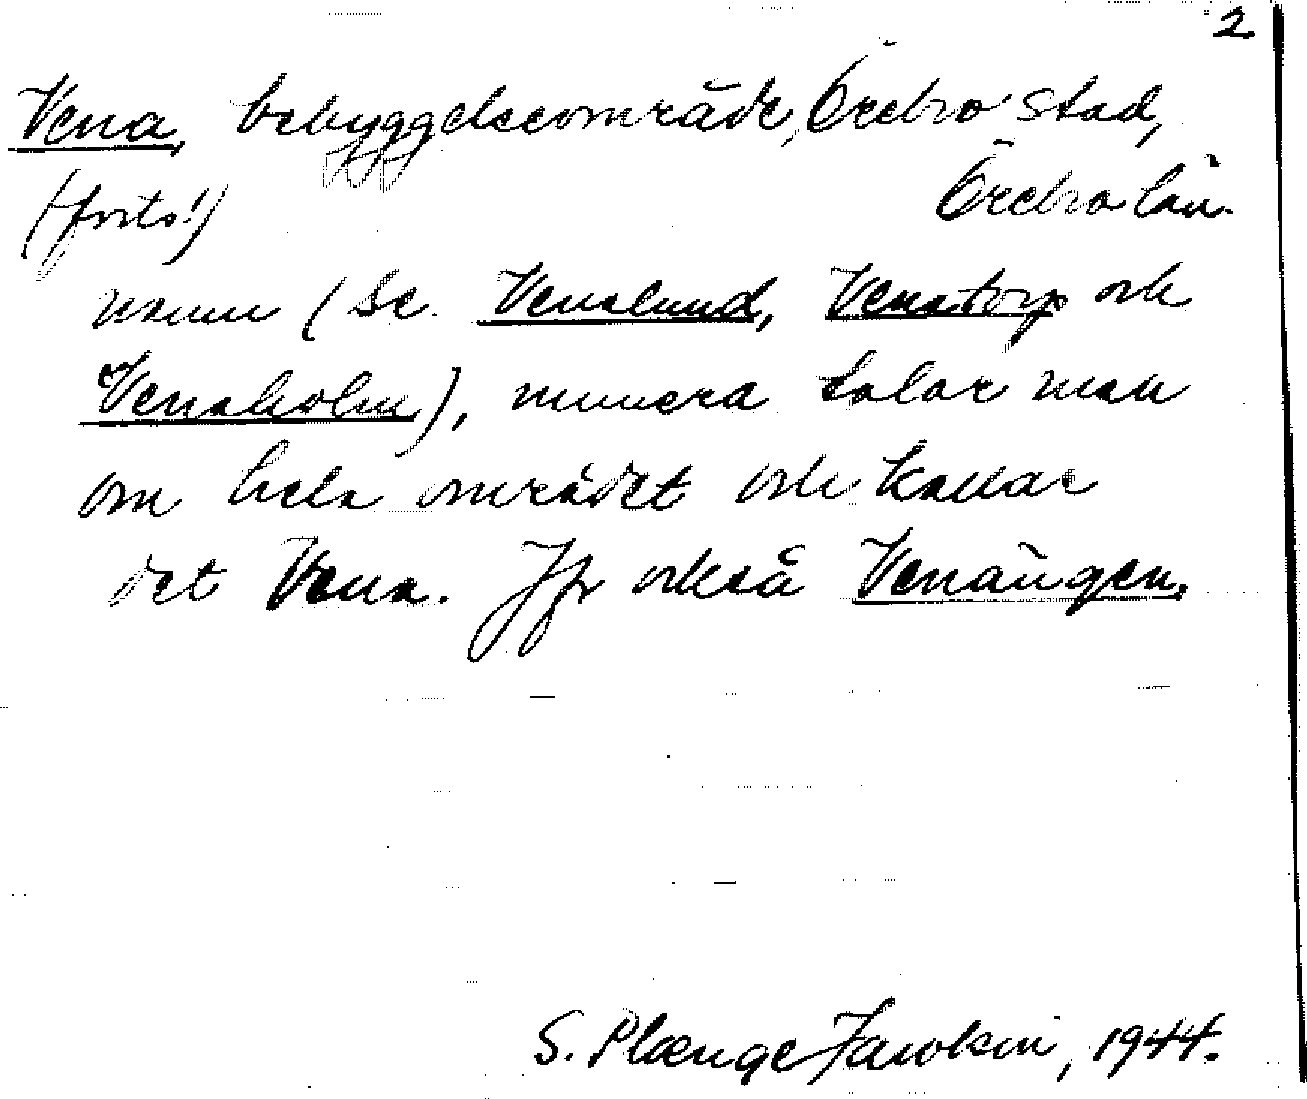 2
Vena, bebyggelseområde, Örebro stad,
(forts!) Örebro län.
namn (se Venalund, Venatorp och
Venaholm), numera talar man
om hela området och kallar
det Vena. Jfr också Venaängen.
S. Plænge Jacobson, 1944.